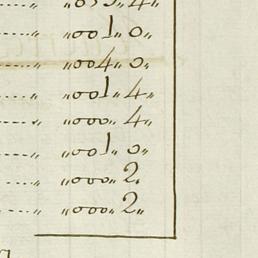 „001„0„
„004„0„
„001„4„
„000„4„
„001„0„
„000„2„
„000„2„